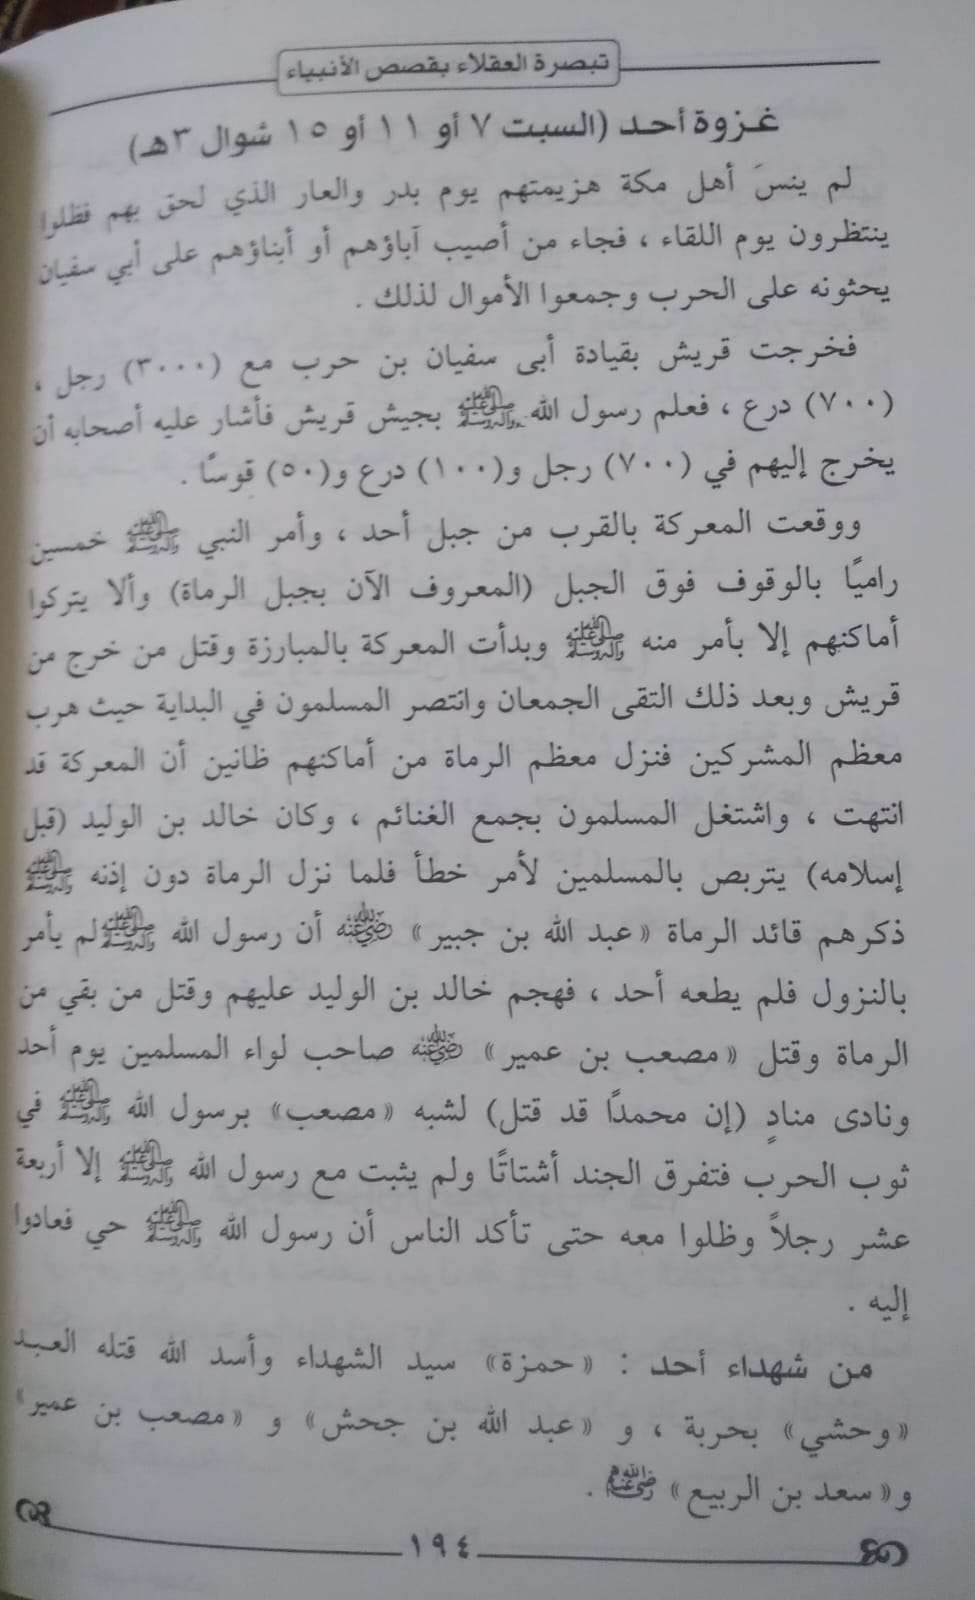 تبصرة العقلاء بقصص الأنبياء
غزوة أحد (السبت ٧ أو ١١ أو ١٥ شوال ٣هـ)
لم ينسَ أهل مكة هزيمتهم يوم بدر والعار الذي لحق بهم فظلوا
ينتظرون يوم اللقاء ، فجاء من أصيب آباؤهم أو أبناؤهم على أبي سفيان
يحثونه على الحرب وجمعوا الأموال لذلك .
فخرجت قريش بقيادة أبى سفيان بن حرب مع (٣٠٠٠) رجل ،
(٧٠٠) درع ، فعلم رسول الله ﷺ بجيش قريش فأشار عليه أصحابه أن
يخرج إليهم في (٧٠٠) رجل و(١٠٠) درع و(٥٠) قوسًا .
ووقعت المعركة بالقرب من جبل أحد ، وأمر النبي ﷺ خمسين
راميًا بالوقوف فوق الجبل (المعروف الآن بجبل الرماة) وألا يتركوا
أماكنهم إلا بأمر منه ﷺ وبدأت المعركة بالمبارزة وقتل من خرج من
قريش وبعد ذلك التقى الجمعان وانتصر المسلمون في البداية حيث هرب
معظم المشركين فنزل معظم الرماة من أماكنهم ظانين أن المعركة قد
انتهت ، واشتغل المسلمون بجمع الغنائم ، وكان خالد بن الوليد (قبل
إسلامه) يتربص بالمسلمين لأمر خطأ فلما نزل الرماة دون إذنه ﷺ
ذكرهم قائد الرماة «عبد الله بن جبير» رضي الله عنه أن رسول الله ﷺ لم يأمر
بالنزول فلم يطعه أحد ، فهجم خالد بن الوليد عليهم وقتل من بقي من
الرماة وقتل «مصعب بن عمير» رضي الله عنه صاحب لواء المسلمين يوم أحد
ونادى منادٍ (إن محمدًا قد قتل) لشبه «مصعب» برسول الله ﷺ في
ثوب الحرب فتفرق الجند أشتاتًا ولم يثبت مع رسول الله ﷺ إلا أربعة
عشر رجلاً وظلوا معه حتى تأكد الناس أن رسول الله ﷺ حي فعادوا
إليه .
من شهداء أحد : «حمزة» سيد الشهداء وأسد الله قتله العبد
«وحشي» بحربة ، و «عبد الله بن جحش» و «مصعب بن عمير»
و«سعد بن الربيع» رضي الله عنهم .
١٩٤